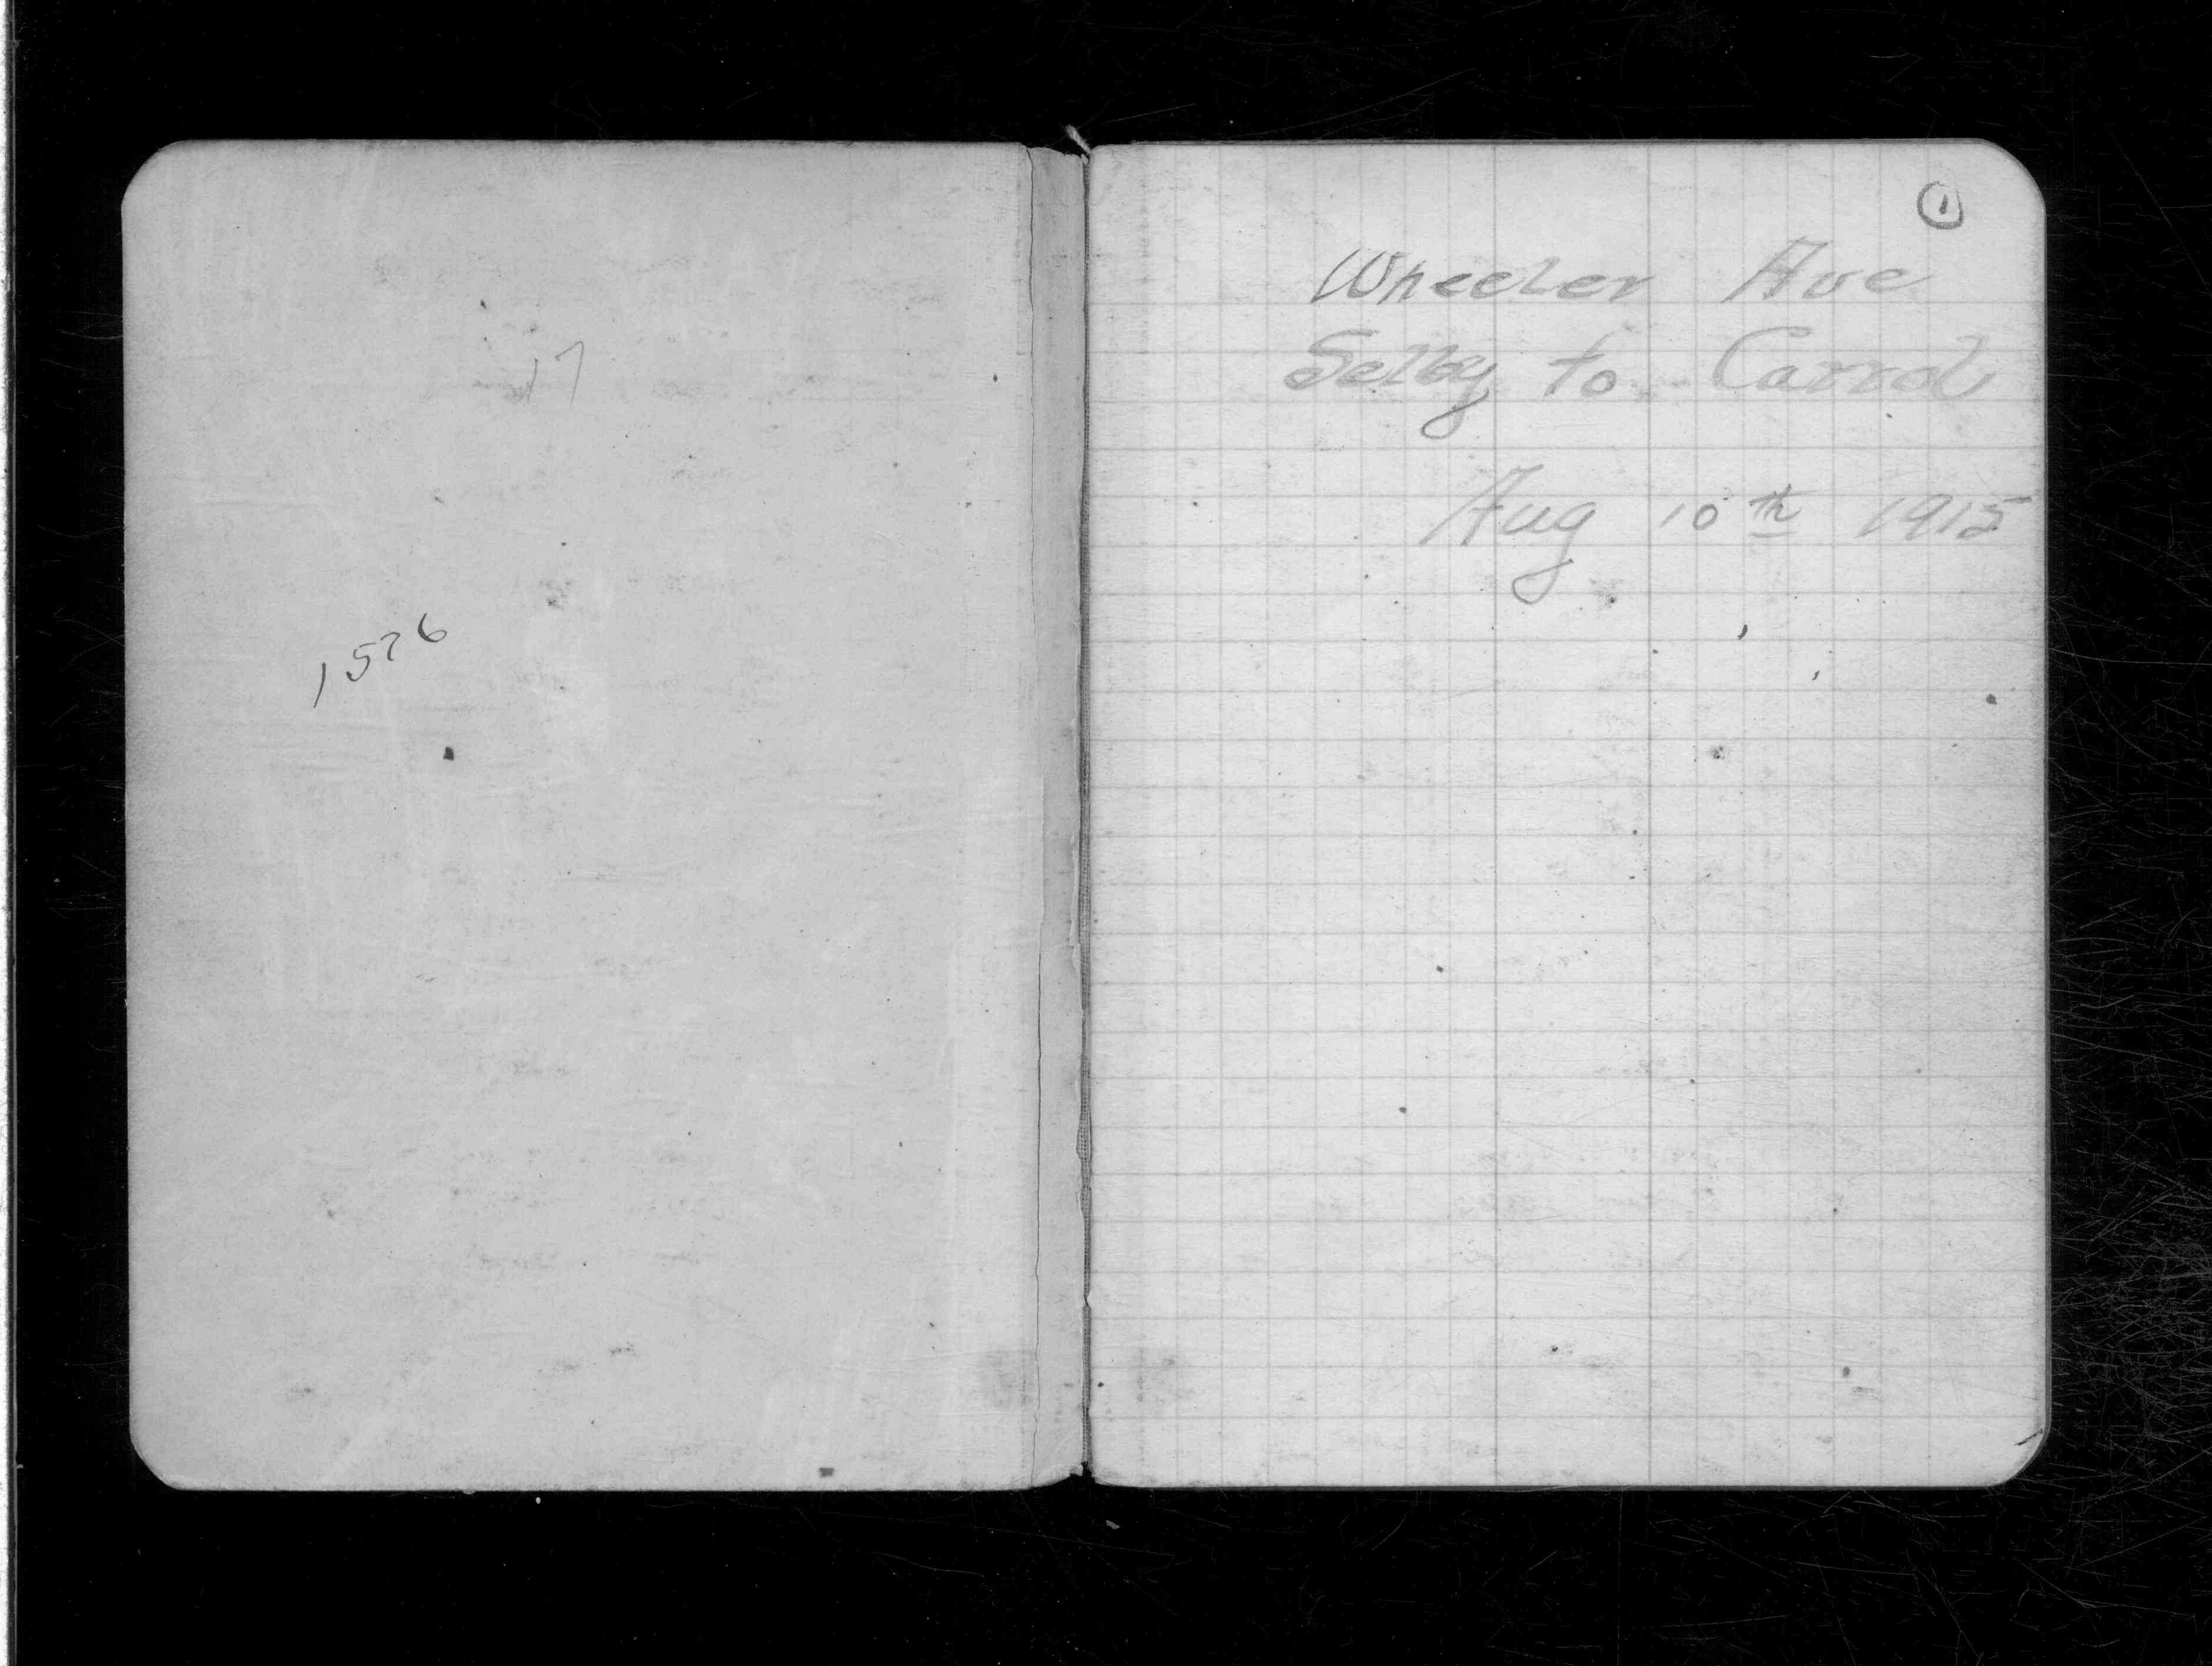 17
1576
1
Wheeler Ave
Selby to Carrol
Aug 10th 1915